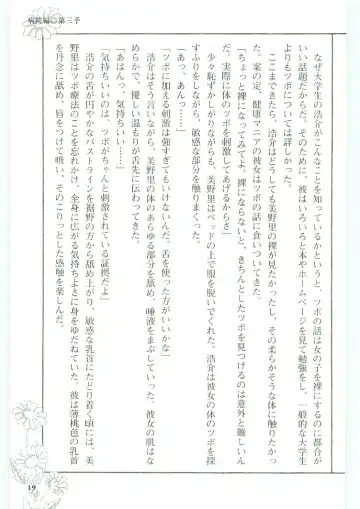 病院編●第三手
なぜ大学生の浩介がこんなことを知っているかというと、ツボの話は女の子を裸にするのに都合が
いい話題だからだ。そのために、彼はいろいろと本やホームページを見て勉強をし、一般的な大学生
よりもツボについては詳しかった。
ここまできたら、浩介はどうしても美野里の裸が見たかったし、その柔らかそうな体に触りたかっ
た。案の定、健康マニアの彼女はツボの話に食いついてきた。
「ちょっと裸になってみてよ。裸にならないと、きちんとしたツボを見つけるのは意外と難しいん
だ。実際に体のツボを刺激してあげるからさ」
少々恥ずかしがりながらも、美野里はベッドの上で服を脱いでくれた。浩介は彼女の体のツボを探
すふりをしながら、敏感な部分を触りまくった。
「あっ、あんっ……」
「ツボに加える刺激は強すぎてもいけないんだ。舌を使った方がいいかな」
浩介はそう言いながら、美野里の体のあらゆる部分を舐め、唾液をまぶしていった。彼女の肌はな
めらかで、優しい温もりが舌先に伝わってきた。
「あはんっ、気持ちいい……」
「気持ちいいのは、ツボがちゃんと刺激されている証拠だよ」
浩介の舌が円やかなバストラインを裾野の方から舐め上がり、敏感な乳首にたどり着く頃には、美
野里はツボ療法のことを忘れかけ、全身に広がる気持ちよさに身をゆだねていた。彼は薄桃色の乳首
を丹念に舐め、唇をつけて吸い、そのこりっとした感触を楽しんだ。
19